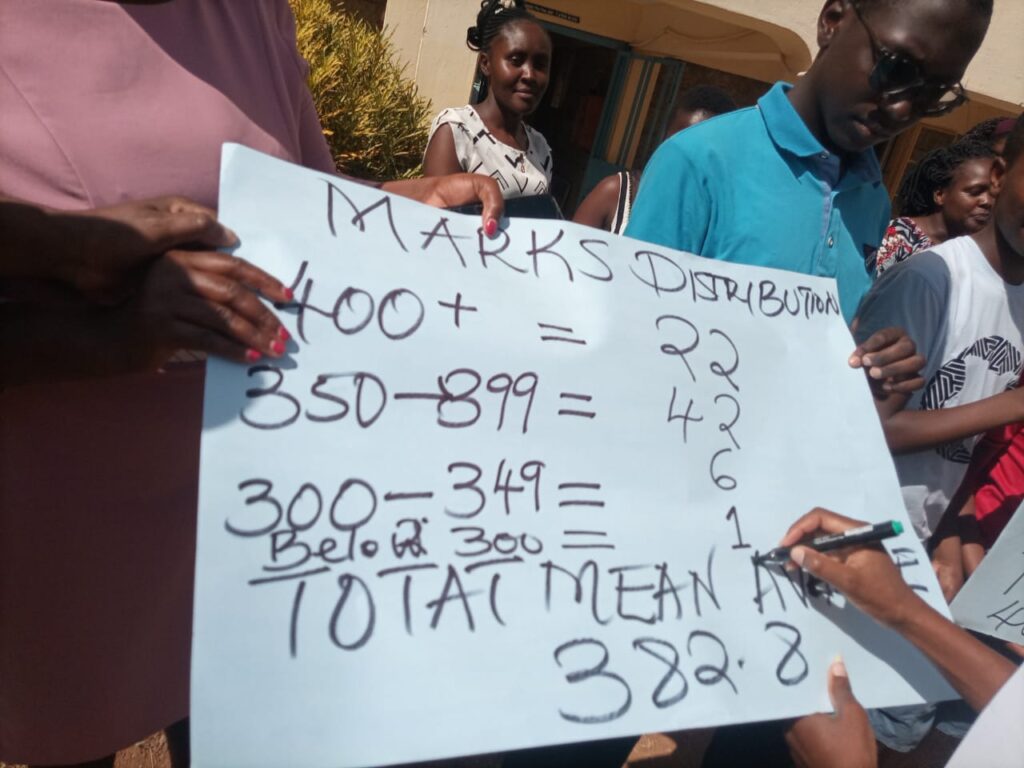 MARKS DISTRIBUTION
400+ = 22
350-399 = 42
300-349 = 6
Below 300 = 1
TOTAL MEAN
382.8